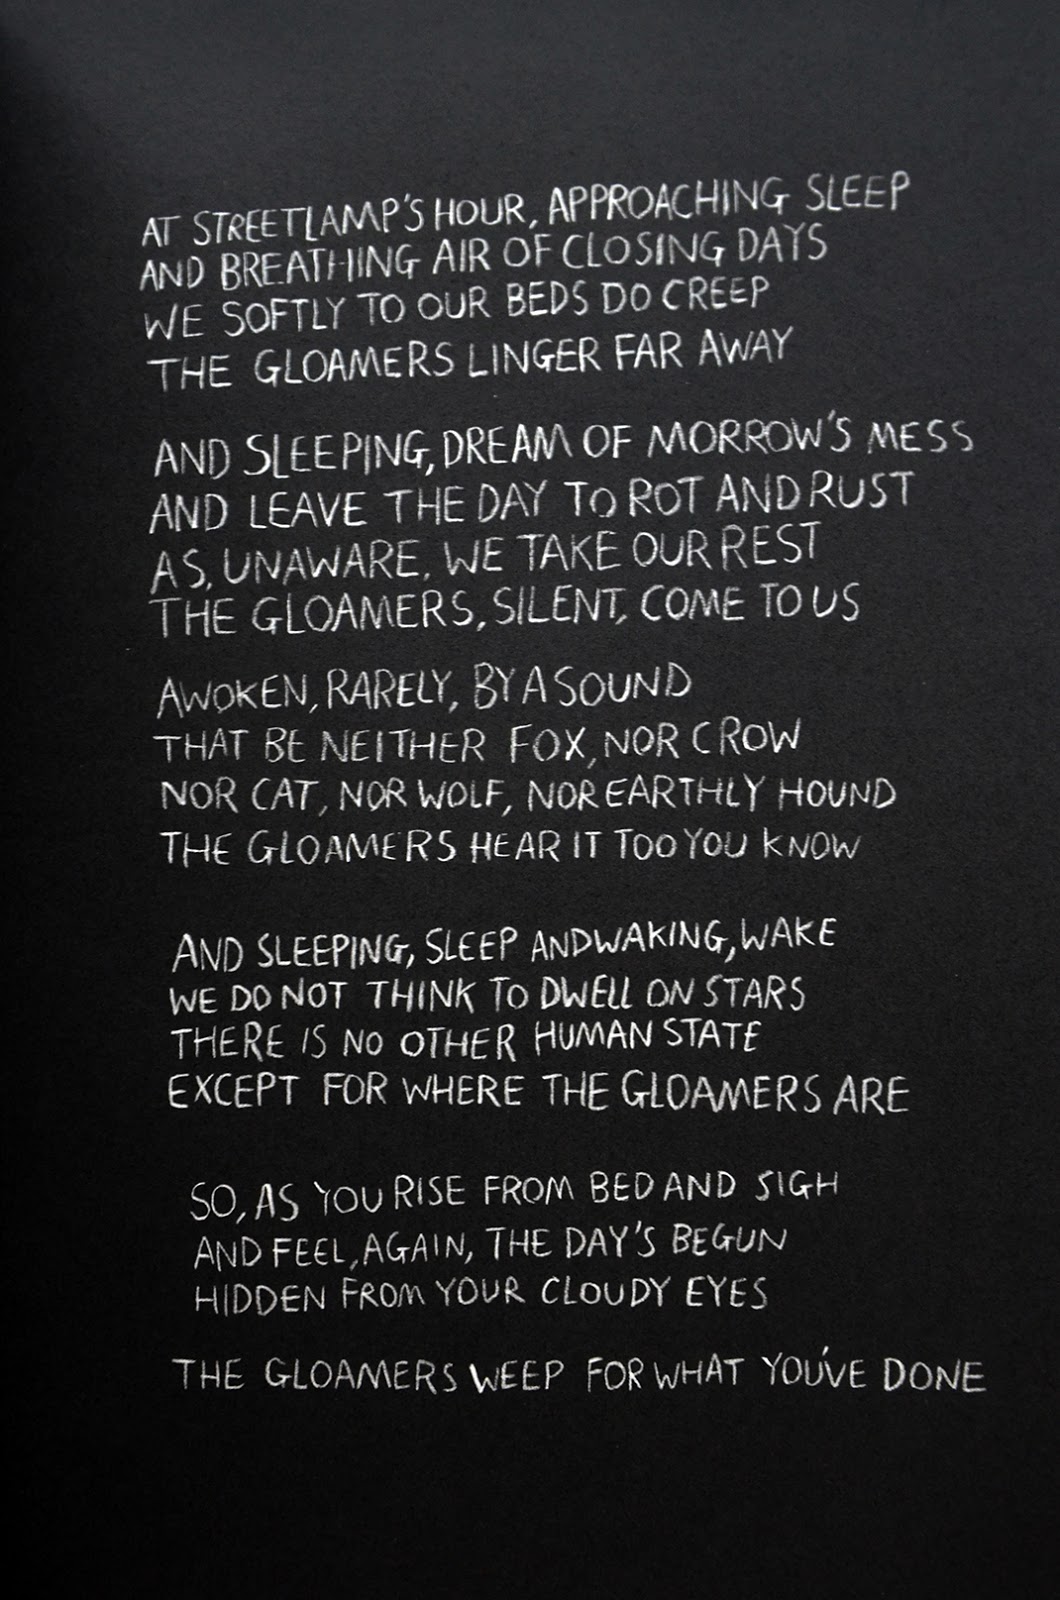 AT STREETLAMP'S HOUR, APPROACHING SLEEP
AND BREATHING AIR OF CLOSING DAYS
WE SOFTLY TO OUR BEDS DO CREEP
THE GLOAMERS LINGER FAR AWAY
AND SLEEPING, DREAM OF MORROW'S MESS
AND LEAVE THE DAY TO ROT AND RUST
AS, UNAWARE, WE TAKE OUR REST
THE GLOAMERS, SILENT, COME TO US
AWOKEN, RARELY, BY A SOUND
THAT BE NEITHER FOX, NOR CROW
NOR CAT, NOR WOLF, NOR EARTHLY HOUND
THE GLOAMERS HEAR IT TOO YOU KNOW
AND SLEEPING, SLEEP AND WAKING, WAKE
WE DO NOT THINK TO DWELL ON STARS
THERE IS NO OTHER HUMAN STATE
EXCEPT FOR WHERE THE GLOAMERS ARE
SO, AS YOU RISE FROM BED AND SIGH
AND FEEL, AGAIN, THE DAY'S BEGUN
HIDDEN FROM YOUR CLOUDY EYES
THE GLOAMERS WEEP FOR WHAT YOU'VE DONE